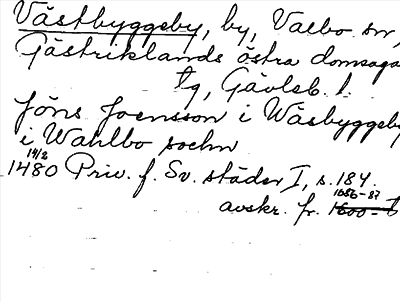 Västbyggeby, by, Valbo sn,
Gästriklands östra domsaga
tg, Gävleb. l.
Jöns Joensson i Wäsbyggeby
i Wahlbo sochn
14/2
1480 Priv. f. Sv. städer I, s. 184.
1686-87
avskr. fr. 1600-t